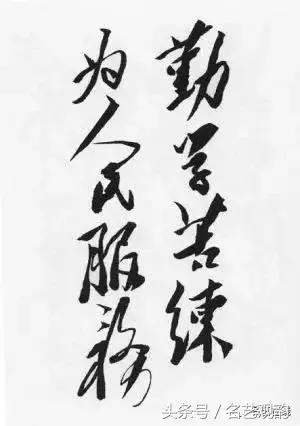 勤学苦练
为人民服务
头条号/名艺观韵